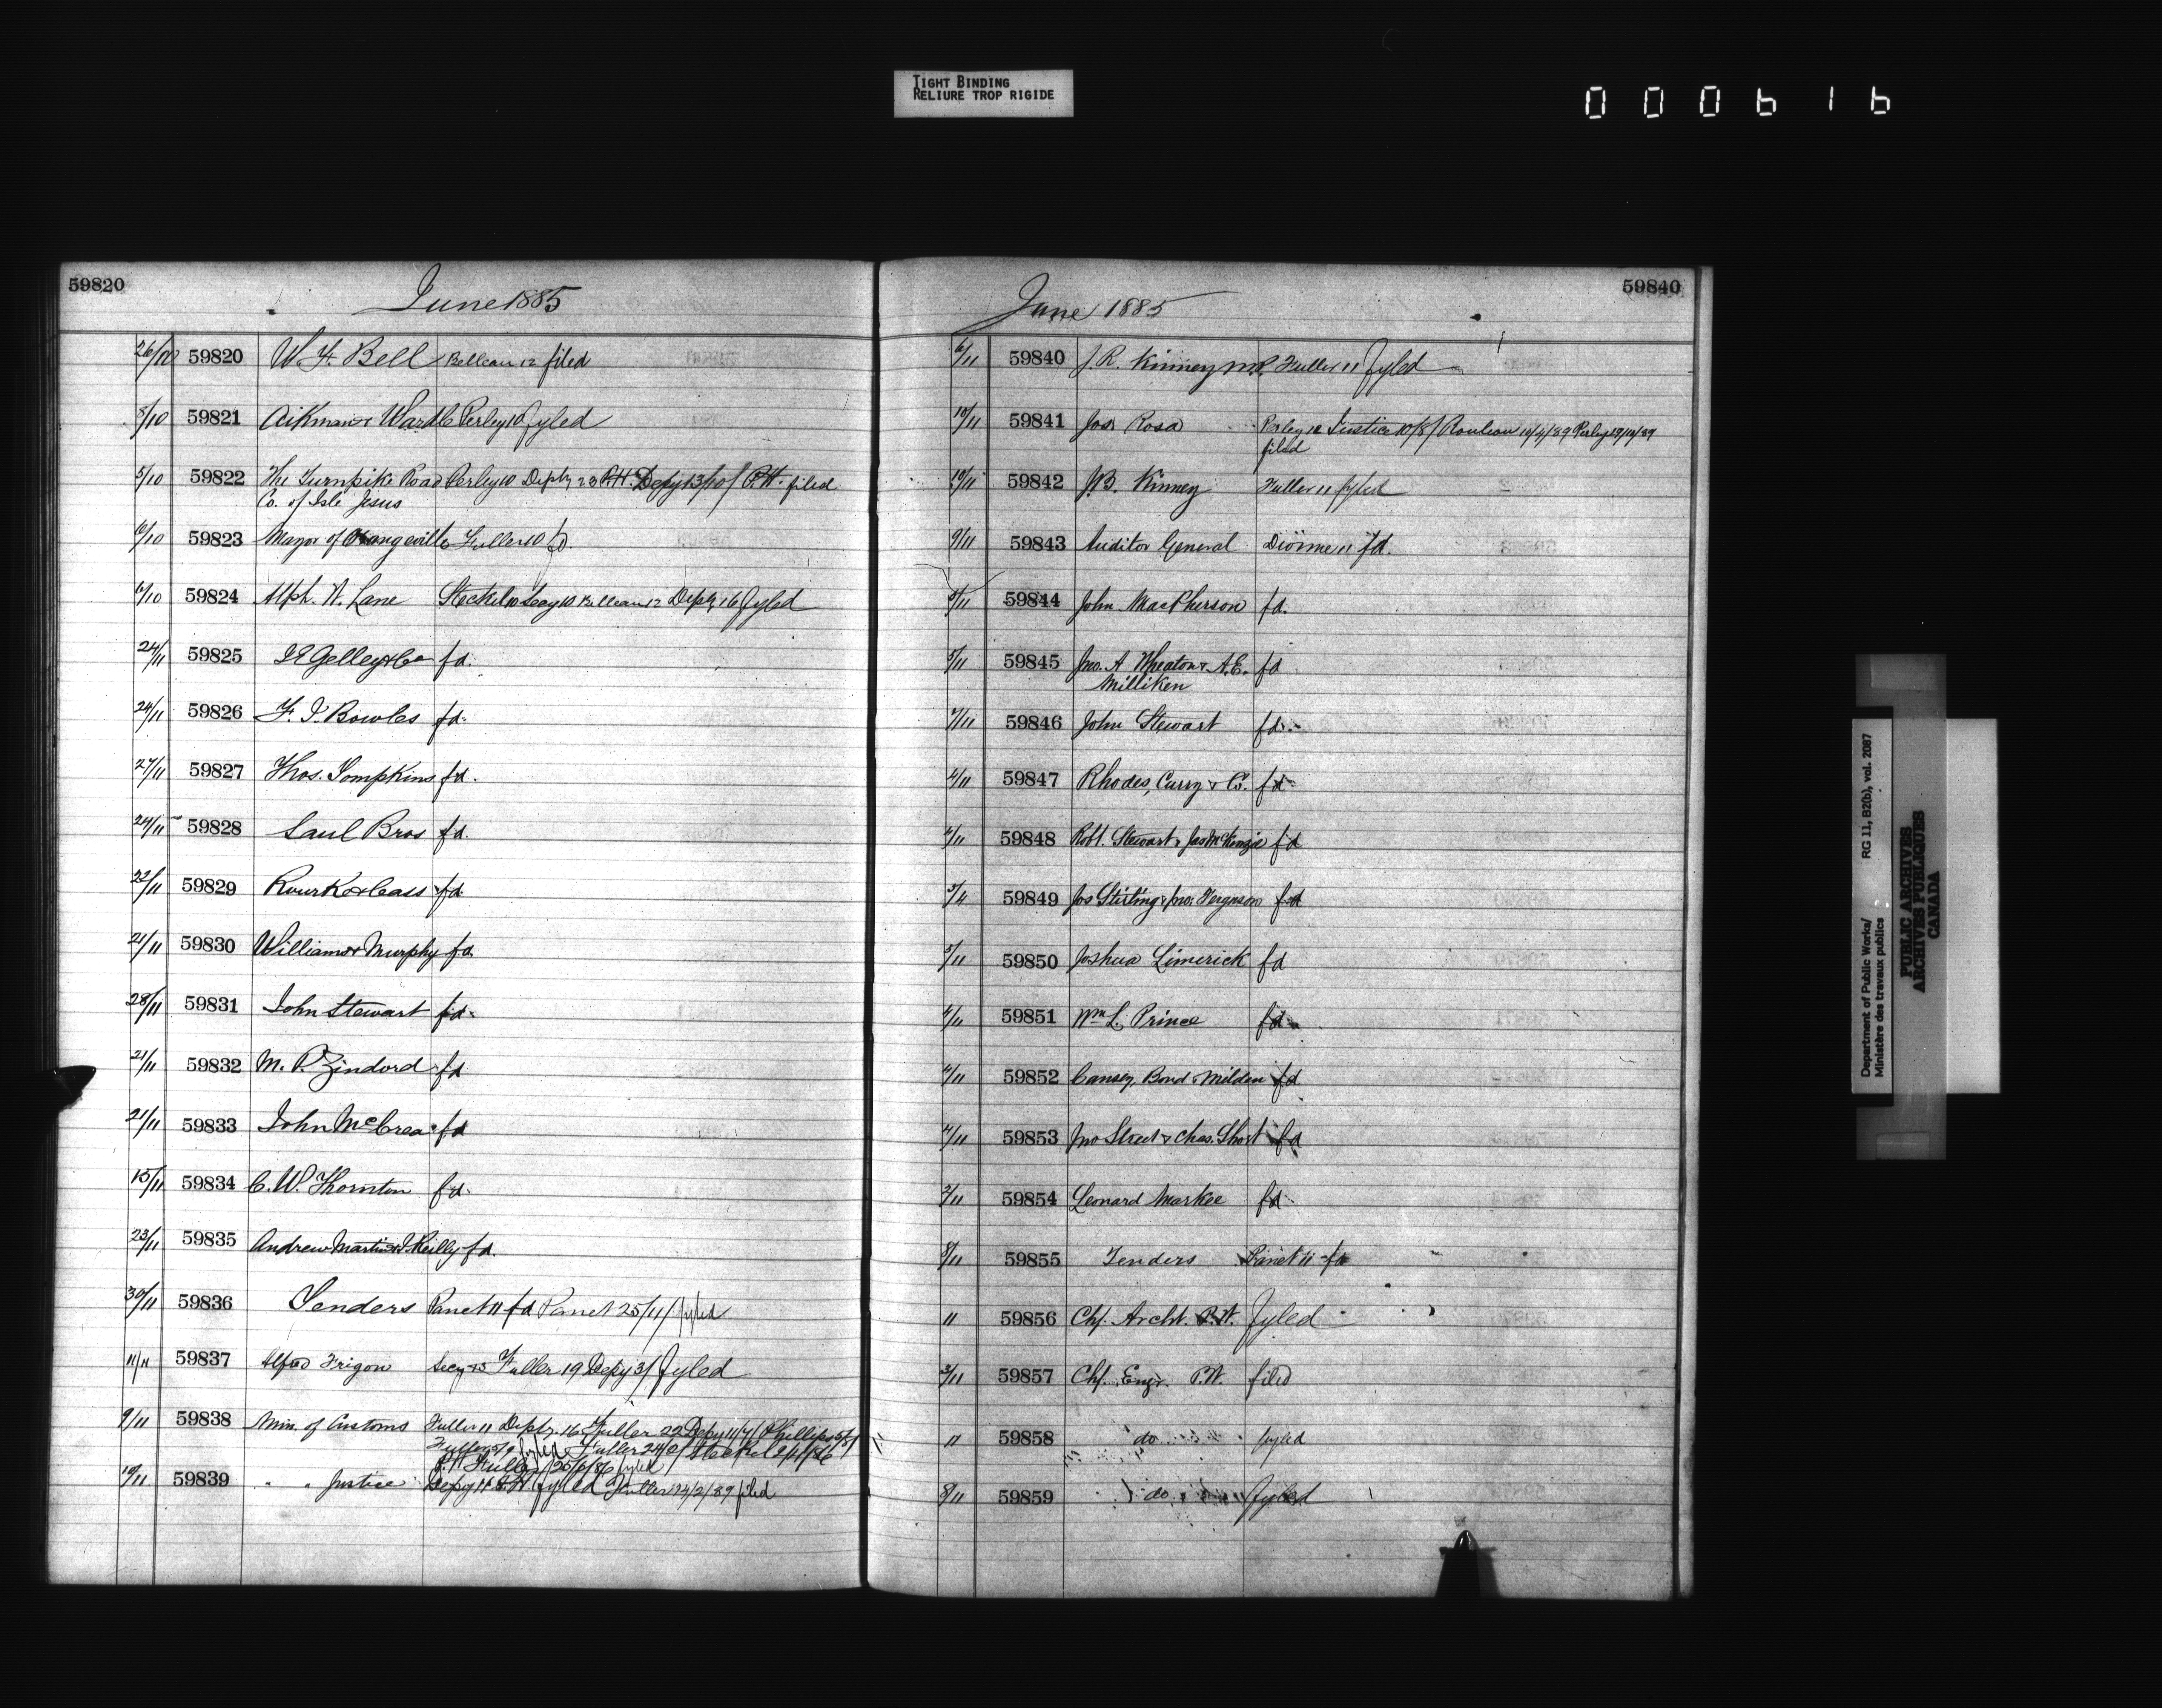 TIGHT BINDING
RELIURE TROP RIGIDE
000616
59820
June 1885
26/10 59820 W. F. Bell Belleau 12 filed
5/10 59821 Aikman & Ward 6 Perley 10 fyled
5/10 59822 The Turnpike Road Perley 10 Depty 28 P.H. Depy 13/10/ P.H. filed
Co. of Isle Jesus
6/10 59823 Mayor of Orangeville Fuller 10 fd.
6/10 59824 Alph. N. Lane Steckel 10 Secy 10 Belleau 12 Depty 16 fyled
24/11 59825 J E Gelley & Co fd.
24/11 59826 F. J. Bowles fd.
27/11 59827 Thos. Tompkins fd.
24/11 59828 Saul Bros fd.
22/11 59829 Rourk & Cass fd.
21/11 59830 Williams & Murphy fd.
28/11 59831 John Stewart fd.
21/11 59832 M. P. fd
21/11 59833 John McCrea fd
15/11 59834 C. W. Thornton fd.
23/11 59835 Andrew Martin & J. Reilly fd.
30/11 59836 Tenders Panet 11 fd Panet 25/11/ fyled
11/11 59837 Alfred Frigon Secy 15 Fuller 19 Depy 3/ fyled
9/11 59838 Min. of Customs Fuller 11 Depty 16 Fuller 22 Depy 11/7/ Phillips 5/5/
Fuller fyled Fuller 24/ Steckel
P.H. Fuller 25/6/86 fyled
10/11 59839 " " Justice Depy 11 P.H. fyled Fuller 14/2/89 filed
59840
June 1885
6/11 59840 J. R. Kinney M.P. Fuller 11 fyled
10/11 59841 Jos. Rosa Perley 12 Justice 10/8/ Rouleau 10/4/89 Perley 29/10/89
filed
10/11 59842 J.B. Kinney Fuller 11 fyled
9/11 59843 Auditor General Dionne 11 fd.
5/11 59844 John MacPherson fd.
5/11 59845 Jno. A Wheaton & A.E. fd
Milliken
7/11 59846 John Stewart fd.
4/11 59847 Rhodes, Curry & Co. fd
4/11 59848 Robt. Stewart & Jas McKenzie fd
3/11 59849 Jos Stirling & Jno. Ferguson fd
5/11 59850 Joshua Limerick fd
4/11 59851 Wm L. Prince fd
4/11 59852 Cansey, Bond & Milden fd
4/11 59853 Jno Street & Chas. Short fd
3/11 59854 Leonard Markee fd
8/11 59855 Tenders Panet 11 fd
11 59856 Chf. Archt. P.W. fyled
3/11 59857 Chf. Engr. P.W. filed
11 59858 do fyled
8/11 59859 do fyled
Department of Public Works/ RG 11, B2(b), vol. 2087
Ministère des travaux publics
PUBLIC ARCHIVES
ARCHIVES PUBLIQUES
CANADA